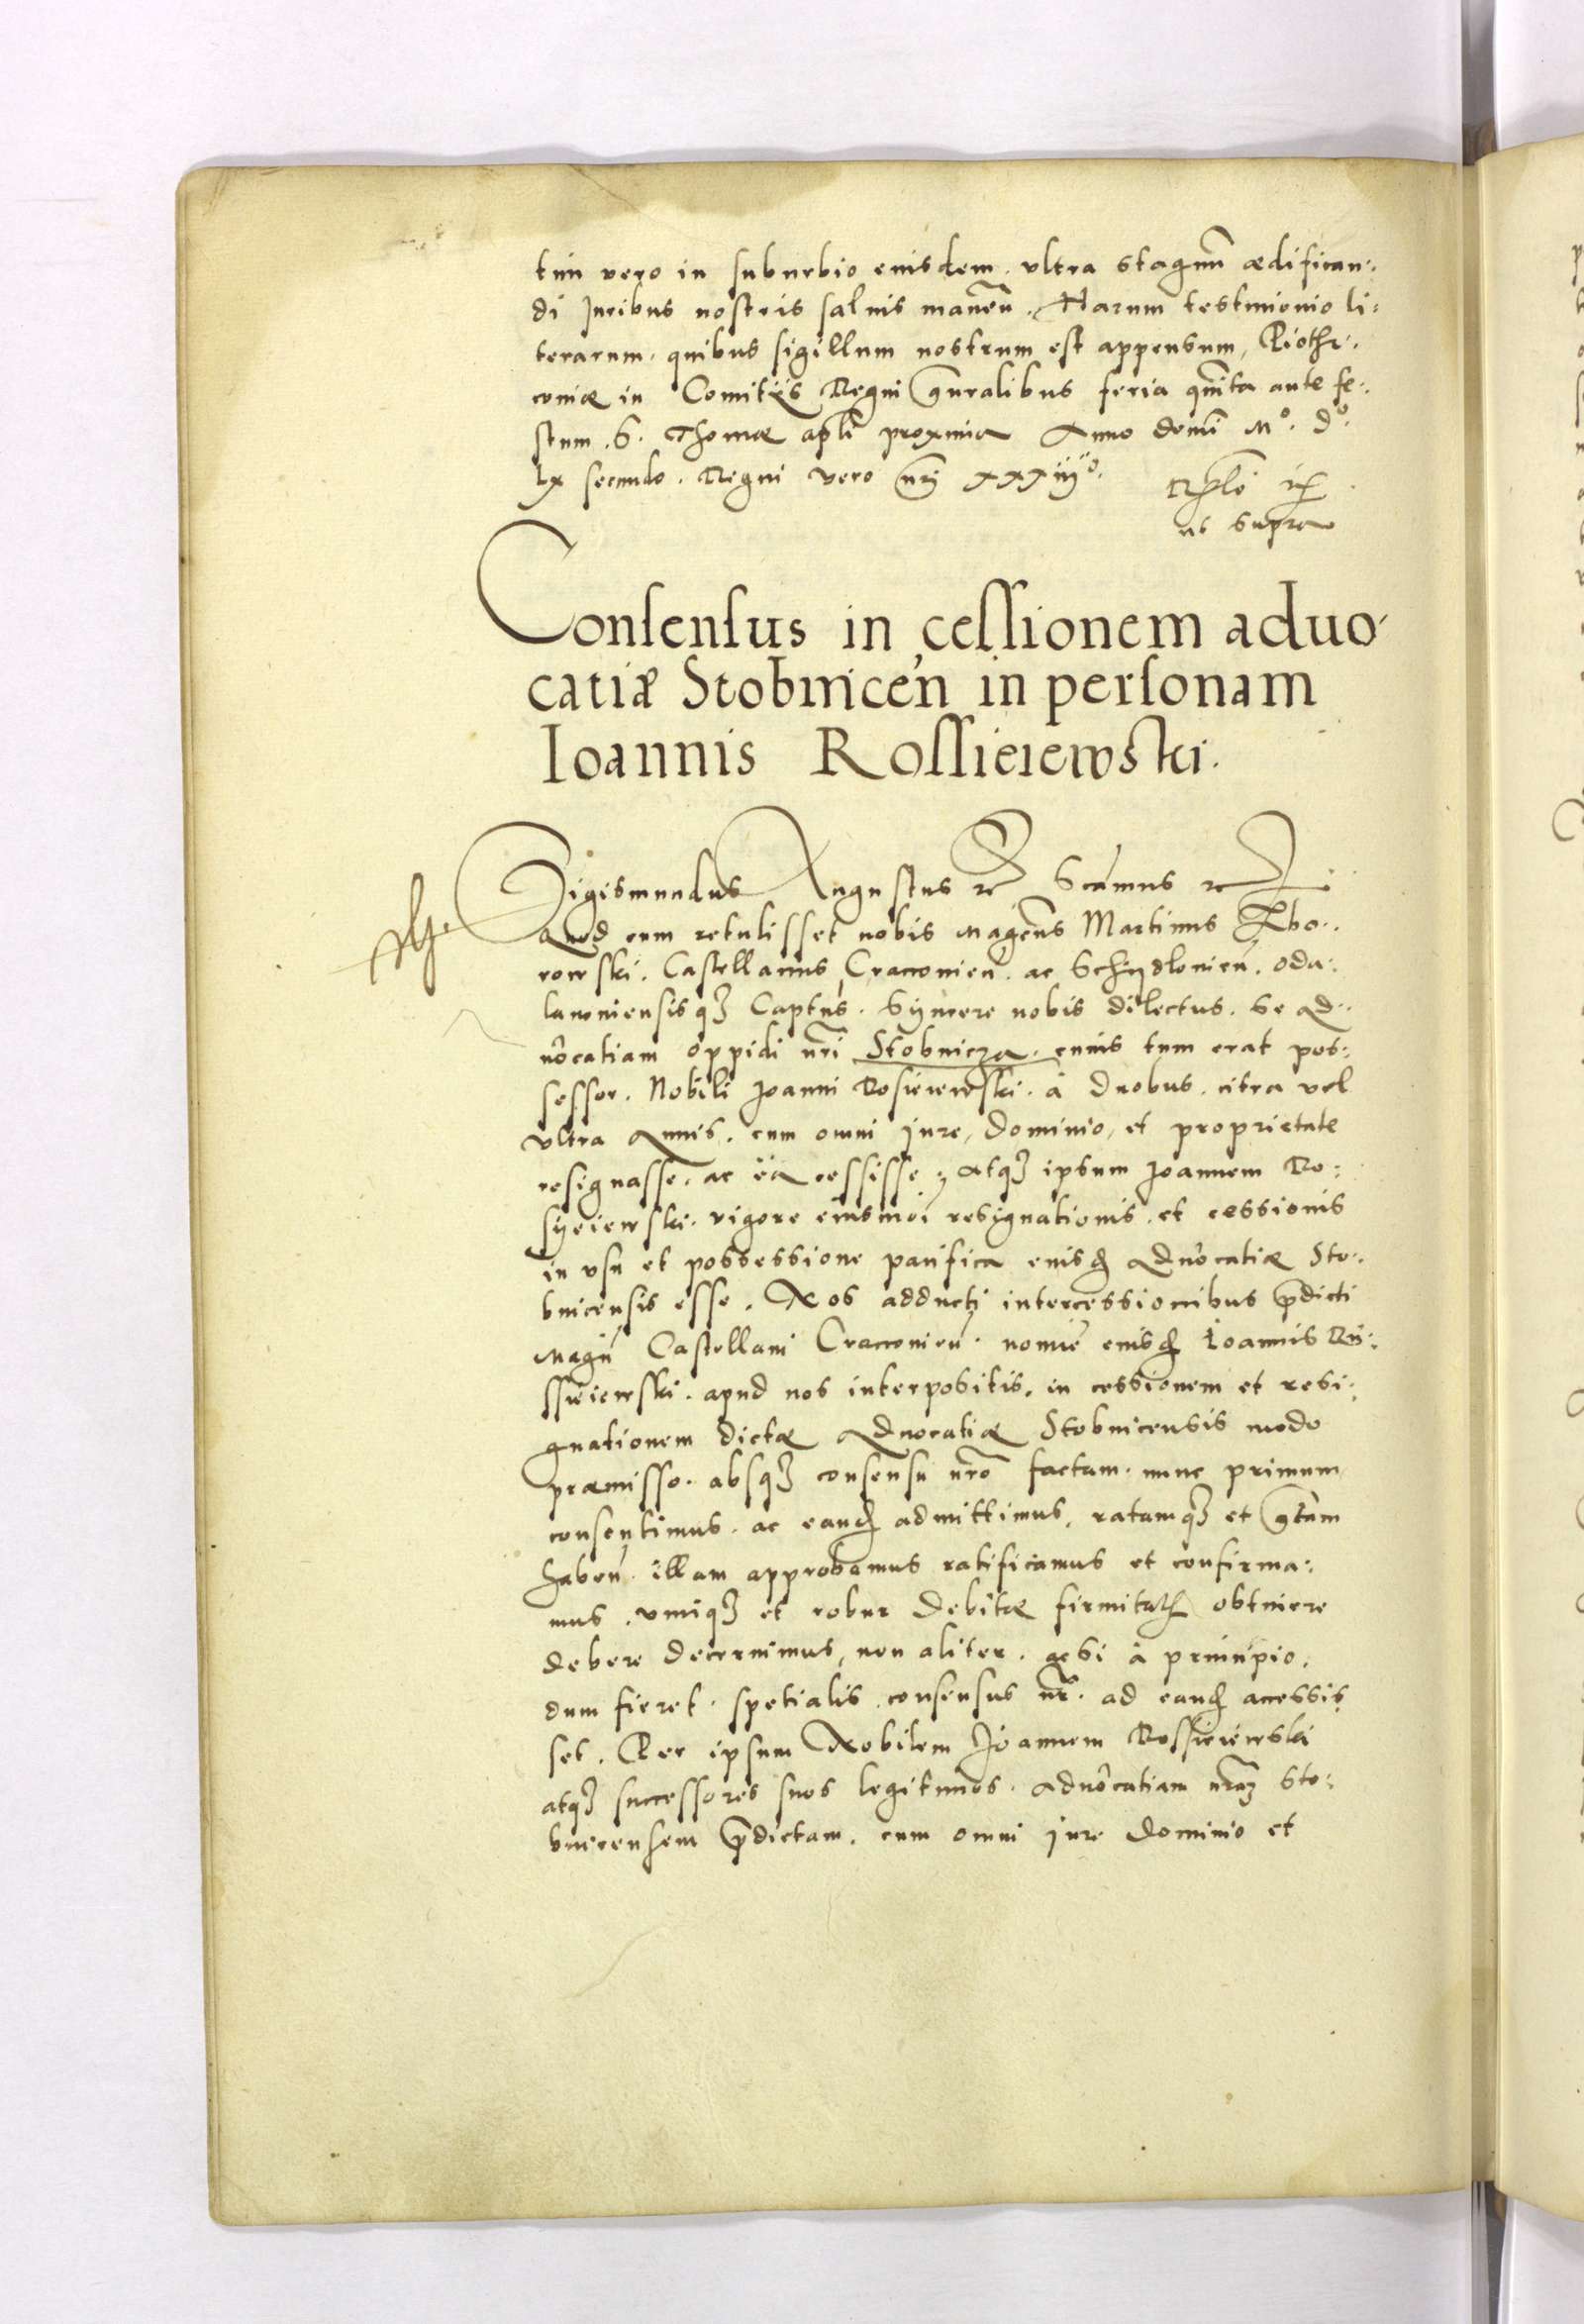 tim vero in suburbio eiusdem. vltra stagnū ædifican:
di Juribus nostris saluis maneñ. Harum testimonio li:
terarum. quibus sigillum nostrum est appensum, Piothr:
coniæ in Comitijs Regni gñralibus feria quīta ante fe:
stum. S. Thomæ apłi proxima Anno domī Mº. dº.
lx secundo. Regni vero nrī xxxiijº.
ut supra
Consensus in cessionem aduo:
catiæ Stobnicen̄ in personam
Ioannis Rossieiewski.
Sigismundus Augustus etc Scamus etc
Quod cum retulisset nobis Magcūs Martinus Zbo:
rowski. Castellanus Cracouien̄. ac Schijdlouien̄. Oda:
lanouiensisqȝ Captus. Syncere nobis dilectus. Se Ad:
uocatiam oppidi nrī Stobnicza. cuius tum erat pos:
sessor. Nobili Joanni Rosieiewski. à duobus. citra vel
vltra Annis. cum omni jure, dominio, et proprietate
resignasse. ac ea cessisse, Atqȝ ipsum Joannem Ro:
syeiewski. vigore eiusmōi resignationis. et cessionis
in vsu et possessione pacifica eiusd Aduocatiæ Sto:
bnicensis esse. Nos adducti intercessionibus p̄dicti
Magn̄ Castellani Cracouien̄. nomīe eiusd Ioannis Ro:
ssieiewski. apud nos interpositis. in cessionem et resi:
gnationem dictæ Aduocatiæ Stobnicensis modo
præmisso. absqȝ consensu nrō factam. nunc primum
consentimus. ac eand admittimus, ratamqȝ et grãtam
haben̄. illam approbamus ratificamus et confirma:
mus. vimqȝ et robur debitæ firmitatis obtinere
debere decernimus, non aliter. acsi à principio.
dum fieret. spetialis consensus nr̄. ad eand accessis,
set. Per ipsum Nobilem Joannem Rossieiewski
atqȝ successores suos legitimos. Aduocatiam nrāȝ Sto:
bnicensem p̄dictam. cum omni jure dominio et